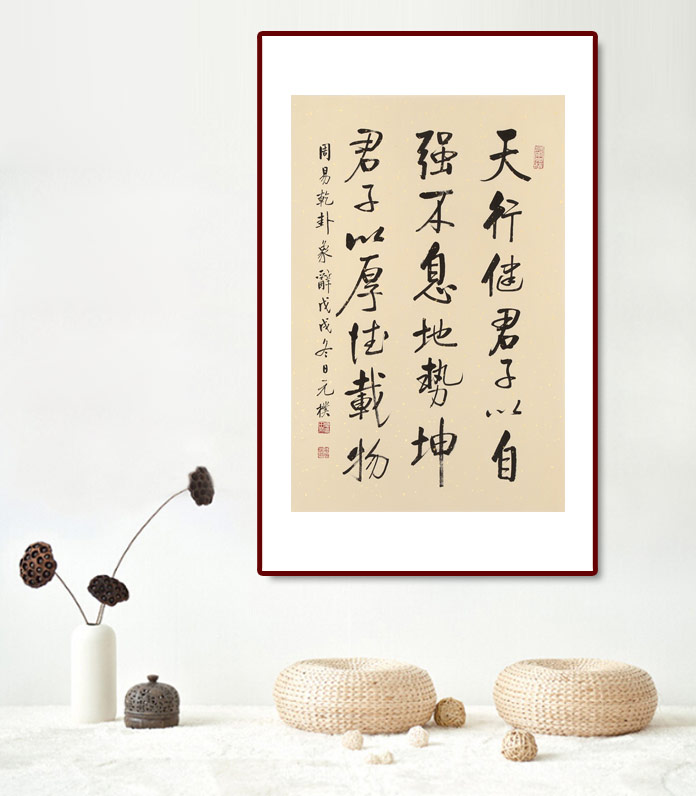 天行健君子以自
强不息地势坤
君子以厚德載物
周易乾卦象辭戊戌冬日元樸